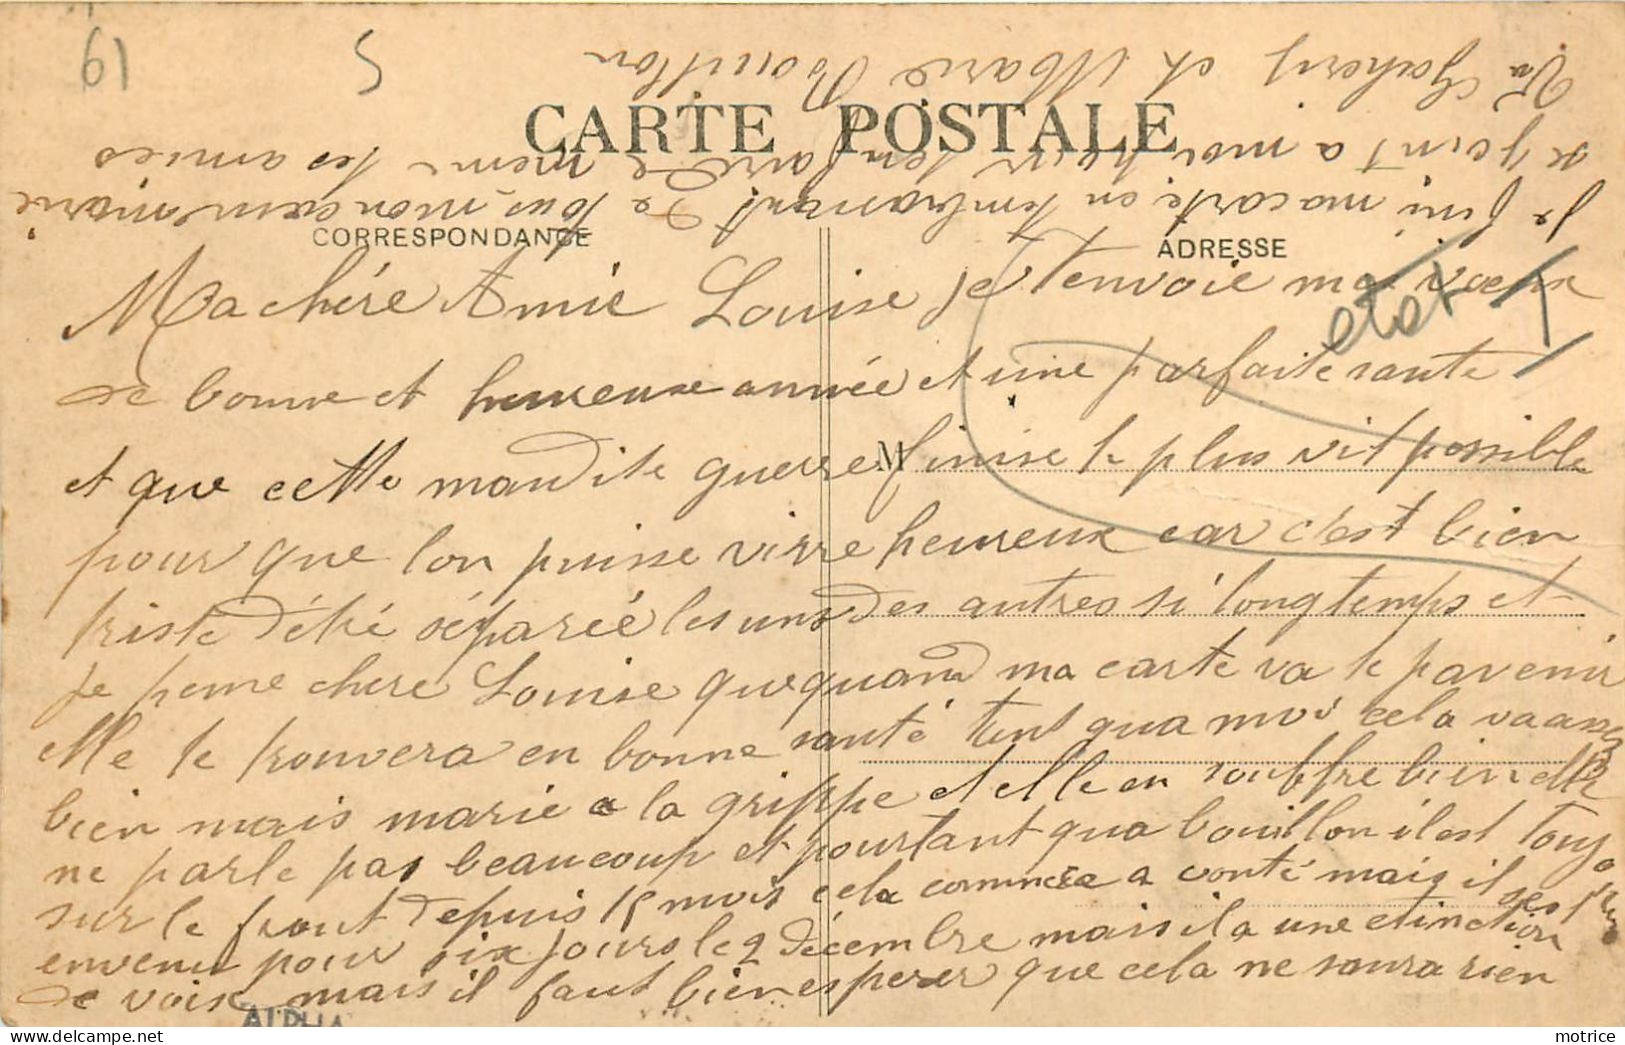 61
CARTE POSTALE
CORRESPONDANCE
ADRESSE
M
etat
Ma chére Amie Louise je t'envoie mes voeux
de bonne et heureuse année et une parfaite sante
et que cette maudite guerre finise le plus vit possible
pour que lon puisse vivre heureux car c'est bien
triste d'étré séparéé les uns des autres si longtemps et
je pense chere Louise que quand ma carte va te parvenir
elle te trouvera en bonne santé tent qua moi cela va assez
bien mais marie a la grippe et elle en souffre bien elle
ne parle pas beaucoup et pourtant qua bouillon il est touj
sur le front depuis 15 mois cela commence a conté mais il
envenu pour six jours le 2 décembre mais il a une etinction
de voix mais il faut bien esperer que cela ne saura rien
je fini ma carte en t'embrassant de tous mon coeur marie
se joint a moi pour ten faire de meme tes amies
et Marie Bouillon
ALPHA
motrice